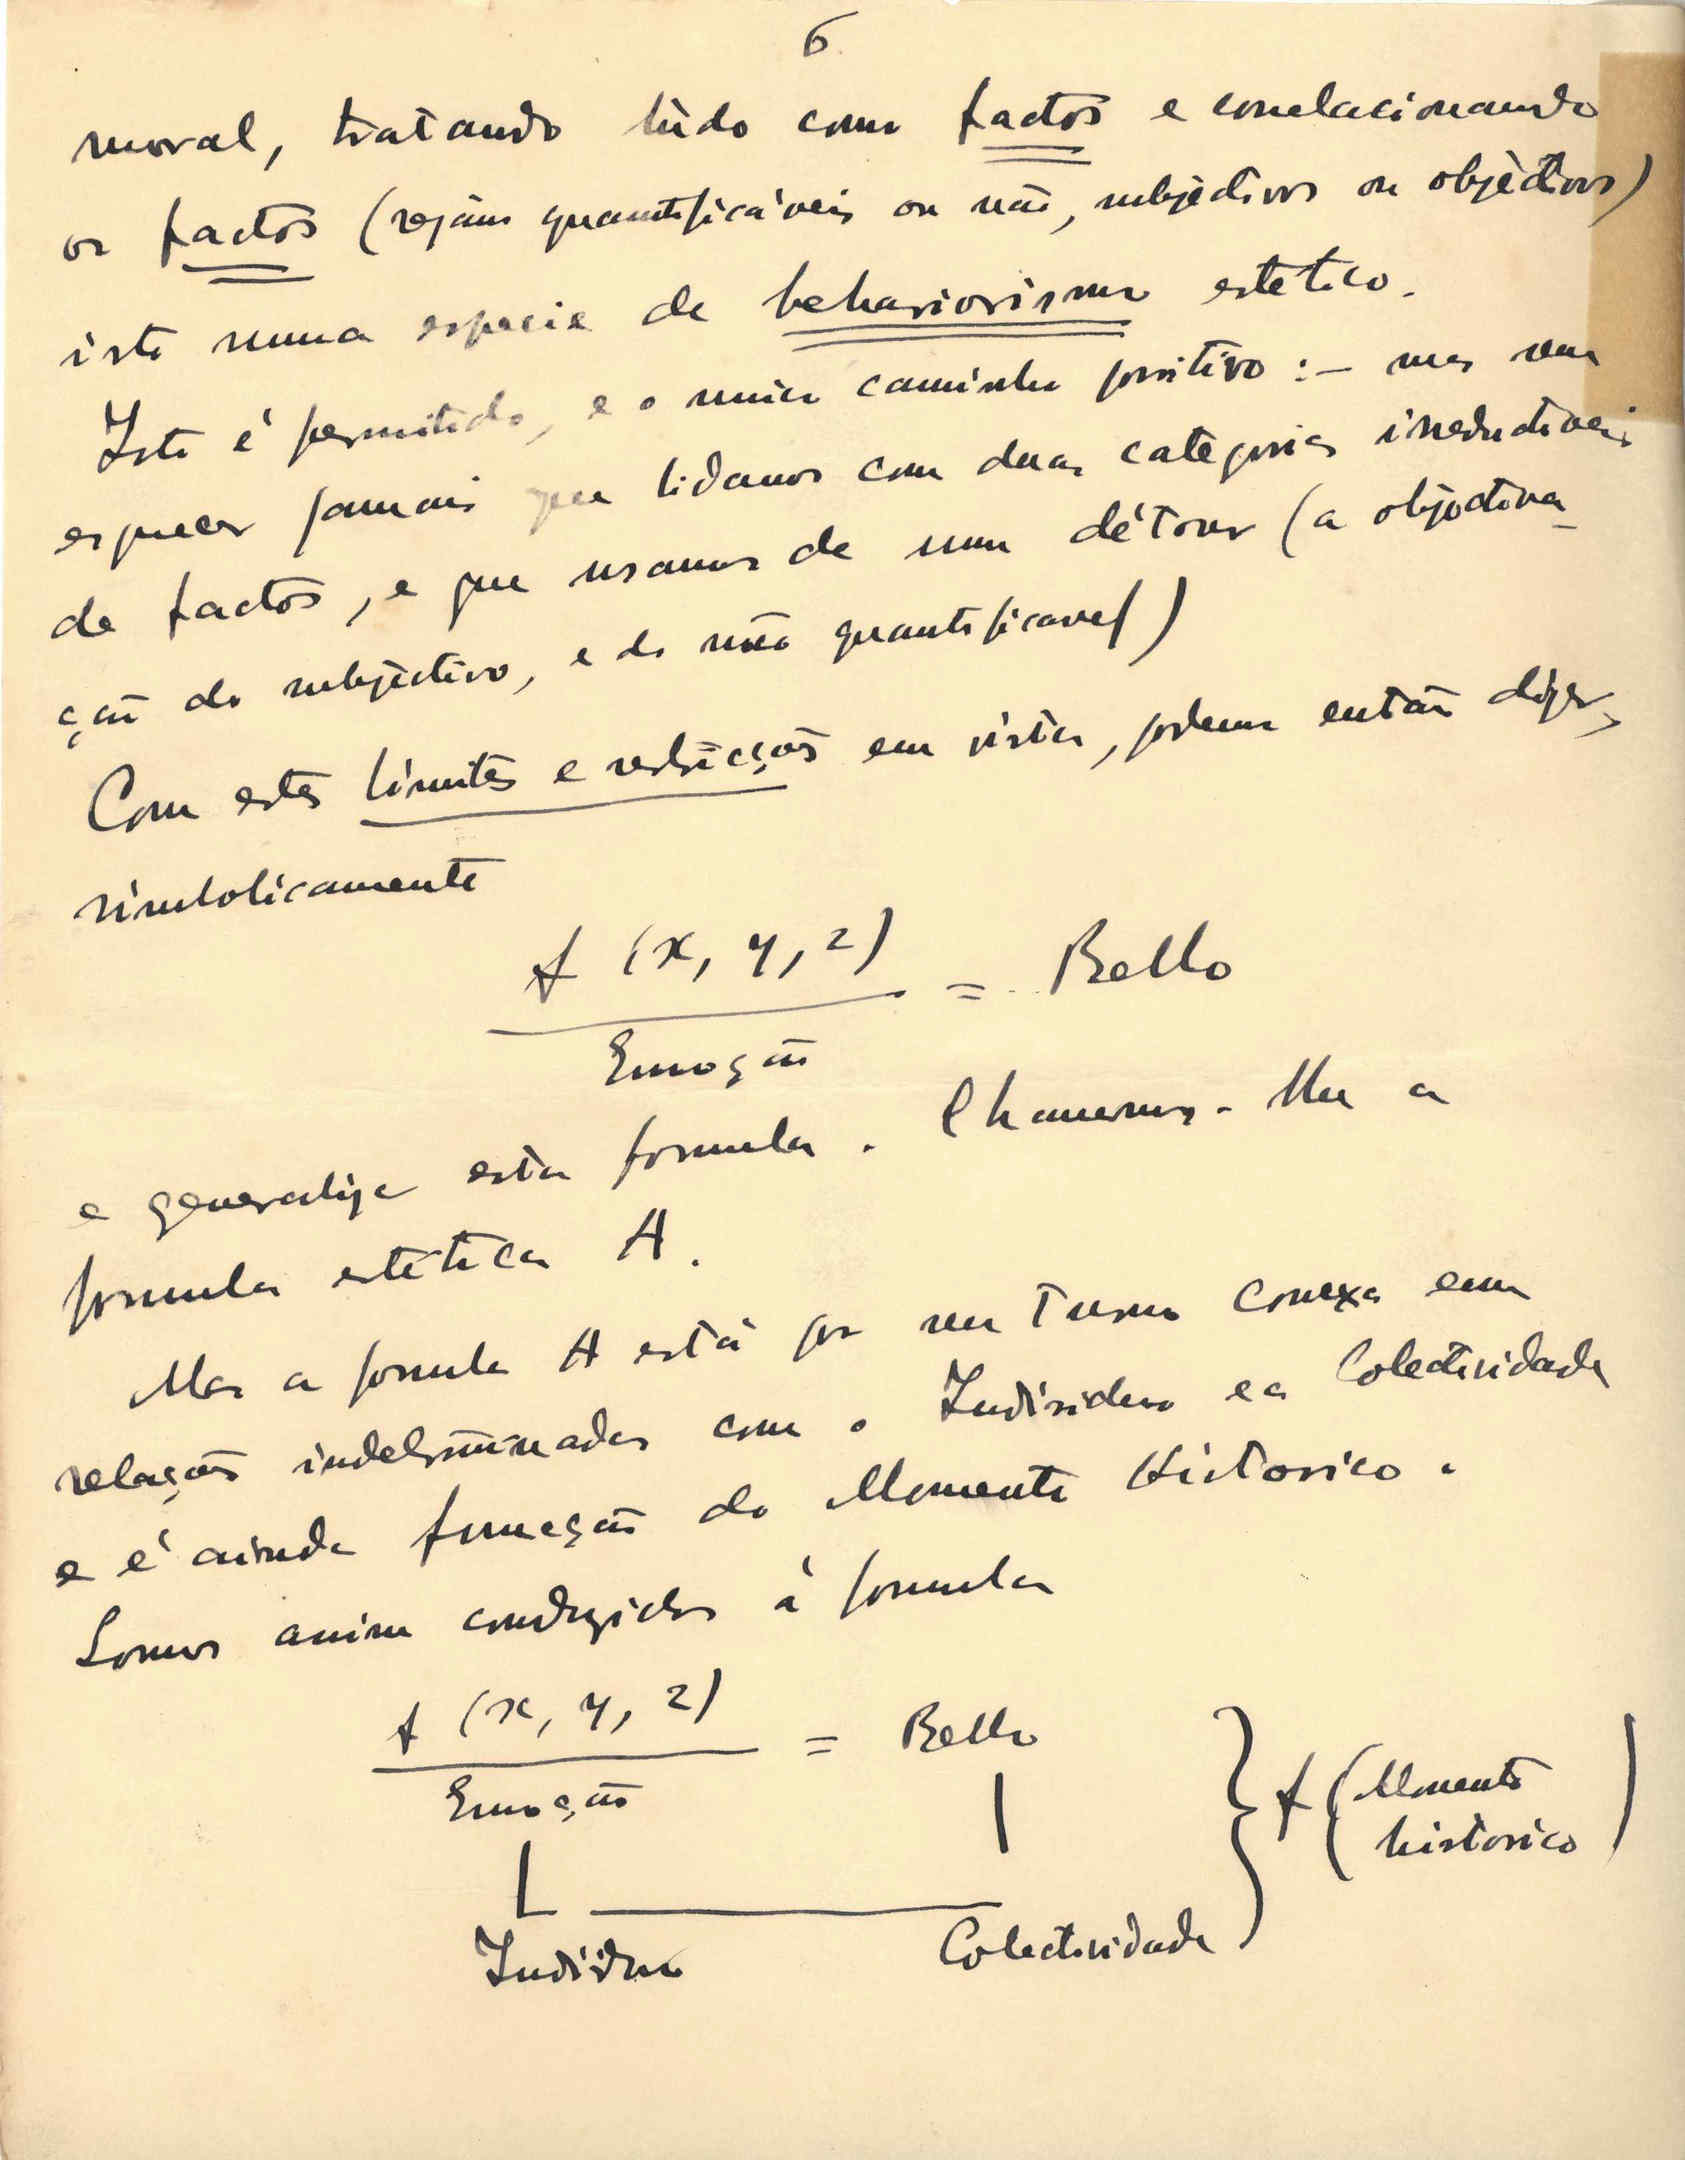 6
moral, tratando tudo como factos e correlacionando
os factos (sejam quantificáveis ou não, subjectivos ou objèctivos)
isto numa especie de behaviorismo estetico.
Isto é permitido, e o unico caminho positivo :- mas sem
esquecer jamais que lidamos com duas categorias irreductiveis
de factos, e que usamos de um détour (a objectiva-
ção do subjectivo, e do não quantificavel)
Com estes limites e restricções em vista, podemos então dizer,
simbolicamente
f (x, y, z)
= Bello
Emoção
e generalize esta formula. Chamemos-lhe a
formula estetica A.
Mas a formula A está por seu turno conexa em
relações indeterminadas com o Individuo e a Colectividade
e é ainda funcção do Momento Historico.
Somos assim conduzidos á formula
f (x, y, z)
= Bello
Emoção
f (Momento
historico)
Individuo
Colectividade